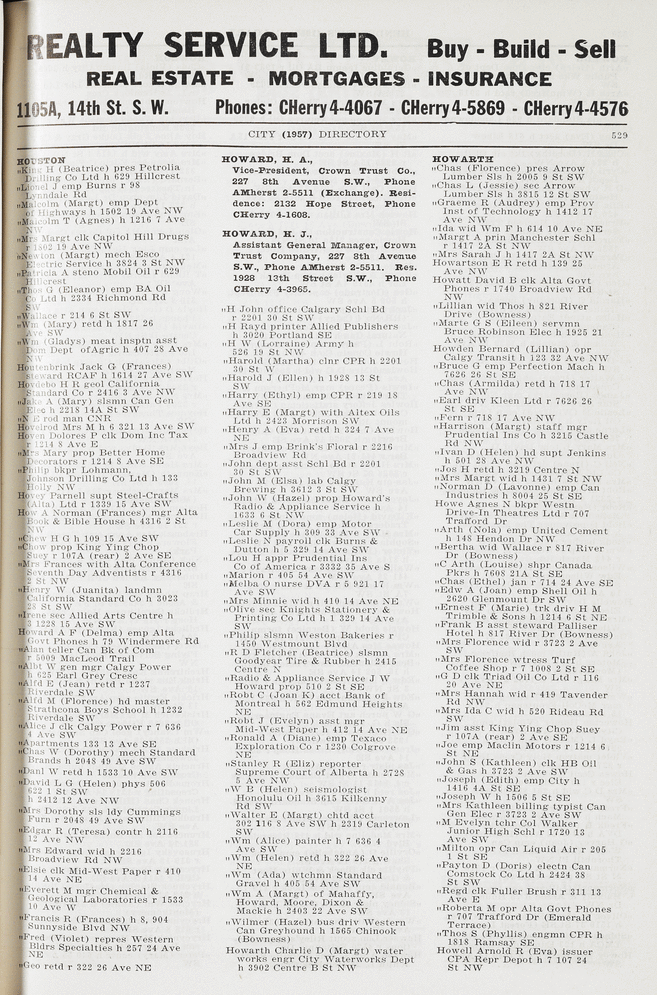 REALTY SERVICE LTD. Buy - Build - Sell
REAL ESTATE - MORTGAGES - INSURANCE
1105A, 14th St. S. W. Phones: CHerry 4-4067 - CHerry 4-5869 - CHerry 4-4576
CITY (1957) DIRECTORY 529
HOUSTON
"King H (Beatrice) pres Petrolia
Drilling Co Ltd h 629 Hillcrest
"Lionel J emp Burns r 98
Lynndale Rd
"Malcolm (Margt) emp Dept
of Highways h 1502 19 Ave NW
"Malcolm T (Agnes) h 1216 7 Ave
NW
"Mrs Margt clk Capitol Hill Drugs
r 1802 19 Ave NW
"Newton (Margt) mech Esco
Electric Service h 3824 3 St NW
"Patricia A steno Mobil Oil r 629
Hillcrest
"Thos G (Eleanor) emp BA Oil
Co Ltd h 2334 Richmond Rd
SW
"Wallace r 214 6 St SW
"Wm (Mary) retd h 1817 26
Ave SW
"Wm (Gladys) meat insptn asst
Dom Dept ofAgric h 407 28 Ave
NW
Houtenbrink Jack G (Frances)
steward RCAF h 1614 27 Ave SW
Hovdebo H R geol California
Standard Co r 2416 3 Ave NW
"Jake A (Mary) slsmn Can Gen
Elec h 2218 14A St SW
"N E rod man CNR
Hovelrod Mrs M h 6 321 13 Ave SW
Hoven Dolores P clk Dom Inc Tax
r 1214 8 Ave E
"Mrs Mary prop Better Home
Decorators r 1214 8 Ave SE
"Philip bkpr Lohmann,
Johnson Drilling Co Ltd h 133
Holly NW
Hovey Parnell supt Steel-Crafts
(Alta) Ltd r 1339 15 Ave SW
How A Norman (Frances) mgr Alta
Book & Bible House h 4316 2 St
NW
"Chew H G h 109 15 Ave SW
"Chow prop King Ying Chop
Suey r 107A (rear) 2 Ave SE
"Mrs Frances with Alta Conference
Seventh Day Adventists r 4316
2 St NW
"Henry W (Juanita) landmn
California Standard Co h 3023
28 St SW
"Irene sec Allied Arts Centre h
3 1228 15 Ave SW
Howard A F (Delma) emp Alta
Govt Phones h 79 Windermere Rd
"Alan teller Can Bk of Com
r 5009 MacLeod Trail
"Albt W gen mgr Calgy Power
h 625 Earl Grey Cresc
"Alfd E (Jean) retd r 1237
Riverdale SW
"Alfd M (Florence) hd master
Strathcona Boys School h 1232
Riverdale SW
"Alice J clk Calgy Power r 7 636
4 Ave SW
"Apartments 133 13 Ave SE
"Chas W (Dorothy) mech Standard
Brands h 2048 49 Ave SW
"Danl W retd h 1533 10 Ave SW
"David L G (Helen) phys 506
622 1 St SW
h 2412 12 Ave NW
"Mrs Dorothy sls ldy Cummings
Furn r 2048 49 Ave SW
"Edgar R (Teresa) contr h 2116
12 Ave NW
"Mrs Edward wid h 2216
Broadview Rd NW
"Elsie clk Mid-West Paper r 410
14 Ave NE
"Everett M mgr Chemical &
Geological Laboratories r 1533
10 Ave W
"Francis R (Frances) h 8, 904
Sunnyside Blvd NW
"Fred (Violet) repres Western
Bldrs Specialties h 257 24 Ave
NE
"Geo retd r 322 26 Ave NE
HOWARD, H. A.,
Vice-President, Crown Trust Co.,
227 8th Avenue S.W., Phone
AMherst 2-5511 (Exchange). Resi-
dence: 2132 Hope Street, Phone
CHerry 4-1608.
HOWARD, H. J.,
Assistant General Manager, Crown
Trust Company, 227 8th Avenue
S.W., Phone AMherst 2-5511. Res.
1928 13th Street S.W., Phone
CHerry 4-3965.
"H John office Calgary Schl Bd
r 2201 30 St SW
"H Rayd printer Allied Publishers
h 3020 Portland SE
"H W (Lorraine) Army h
526 19 St NW
"Harold (Martha) clnr CPR h 2201
30 St W
"Harold J (Ellen) h 1928 13 St
SW
"Harry (Ethyl) emp CPR r 219 18
Ave SE
"Harry E (Margt) with Altex Oils
Ltd h 2423 Morrison SW
"Henry A (Eva) retd h 324 7 Ave
NE
"Mrs J emp Brink's Floral r 2216
Broadview Rd
"John dept asst Schl Bd r 2201
30 St SW
"John M (Elsa) lab Calgy
Brewing h 3612 3 St SW
"John W (Hazel) prop Howard's
Radio & Appliance Service h
1633 6 St NW
"Leslie M (Dora) emp Motor
Car Supply h 309 33 Ave SW
"Leslie N payroll clk Burns &
Dutton h 5 329 14 Ave SW
"Lou H appr Prudential Ins
Co of America r 3332 35 Ave S
"Marion r 405 54 Ave SW
"Melba O nurse DVA r 5 921 17
Ave SW
"Mrs Minnie wid h 410 14 Ave NE
"Olive sec Knights Stationery &
Printing Co Ltd h 1 329 14 Ave
SW
"Philip slsmn Weston Bakeries r
1450 Westmount Blvd
"R D Fletcher (Beatrice) slsmn
Goodyear Tire & Rubber h 2415
Centre N
"Radio & Appliance Service J W
Howard prop 510 2 St SE
"Robt C (Joan K) acct Bank of
Montreal h 562 Edmund Heights
NE
"Robt J (Evelyn) asst mgr
Mid-West Paper h 412 14 Ave NE
"Ronald A (Diane) emp Texaco
Exploration Co r 1230 Colgrove
NE
"Stanley R (Eliz) reporter
Supreme Court of Alberta h 2728
5 Ave NW
"W B (Helen) seismologist
Honolulu Oil h 3615 Kilkenny
Rd SW
"Walter E (Margt) chtd acct
302 116 8 Ave SW h 2319 Carleton
SW
"Wm (Alice) painter h 7 636 4
Ave SW
"Wm (Helen) retd h 322 26 Ave
NE
"Wm (Ada) wtchmn Standard
Gravel h 405 54 Ave SW
"Wm A (Margt) of Mahaffy,
Howard, Moore, Dixon &
Mackie h 2403 22 Ave SW
"Wilmer (Hazel) bus driv Western
Can Greyhound h 1565 Chinook
(Bowness)
Howarth Charlie D (Margt) water
works engr City Waterworks Dept
h 3902 Centre B St NW
HOWARTH
"Chas (Florence) pres Arrow
Lumber Sls h 2005 9 St SW
"Chas L (Jessie) sec Arrow
Lumber Sls h 3815 12 St SW
"Graeme R (Audrey) emp Prov
Inst of Technology h 1412 17
Ave NW
"Ida wid Wm F h 614 10 Ave NE
"Margt A prin Manchester Schl
r 1417 2A St NW
"Mrs Sarah J h 1417 2A St NW
Howartson E R retd h 139 25
Ave NW
Howatt David B clk Alta Govt
Phones r 1740 Broadview Rd
NW
"Lillian wid Thos h 821 River
Drive (Bowness)
"Marte G S (Eileen) servmn
Bruce Robinson Elec h 1925 21
Ave NW
Howden Bernard (Lillian) opr
Calgy Transit h 123 32 Ave NW
"Bruce G emp Perfection Mach h
7626 26 St SE
"Chas (Armilda) retd h 718 17
Ave NW
"Earl driv Kleen Ltd r 7626 26
St SE
"Fern r 718 17 Ave NW
"Harrison (Margt) staff mgr
Prudential Ins Co h 3215 Castle
Rd NW
"Ivan D (Helen) hd supt Jenkins
h 501 28 Ave NW
"Jos H retd h 3219 Centre N
"Mrs Margt wid h 1431 7 St NW
"Norman D (Lavonne) emp Can
Industries h 8004 25 St SE
Howe Agnes N bkpr Westn
Drive-In Theatres Ltd r 707
Trafford Dr
"Arth (Nola) emp United Cement
h 148 Hendon Dr NW
"Bertha wid Wallace r 817 River
Dr (Bowness)
"C Arth (Louise) shpr Canada
Pkrs h 7608 21A St SE
"Chas (Ethel) jan r 714 24 Ave SE
"Edw A (Joan) emp Shell Oil h
2620 Glenmount Dr SW
"Ernest F (Marie) trk driv H M
Trimble & Sons h 1214 6 St NE
"Frank B asst steward Palliser
Hotel h 817 River Dr (Bowness)
"Mrs Florence wid r 3723 2 Ave
SW
"Mrs Florence wtress Turf
Coffee Shop r 7 1008 2 St SE
"G D clk Triad Oil Co Ltd r 116
20 Ave NE
"Mrs Hannah wid r 419 Tavender
Rd NW
"Mrs Ida C wid h 520 Rideau Rd
SW
"Jim asst King Ying Chop Suey
r 107A (rear) 2 Ave SE
"Joe emp Maclin Motors r 1214 6
St NE
"John S (Kathleen) clk HB Oil
& Gas h 3723 2 Ave SW
"Joseph (Edith) emp City h
1416 4A St SE
"Joseph W h 1506 5 St SE
"Mrs Kathleen billing typist Can
Gen Elec r 3723 2 Ave SW
"M Evelyn tchr Col Walker
Junior High Schl r 1720 13
Ave SW
"Milton opr Can Liquid Air r 205
1 St SE
"Payton D (Doris) electn Can
Comstock Co Ltd h 2424 38
St SW
"Regd clk Fuller Brush r 311 13
Ave E
"Roberta M opr Alta Govt Phones
r 707 Trafford Dr (Emerald
Terrace)
"Thos S (Phyllis) engmn CPR h
1818 Ramsay SE
Howell Arnold R (Eva) issuer
CPA Repr Depot h 7 107 24
St NW